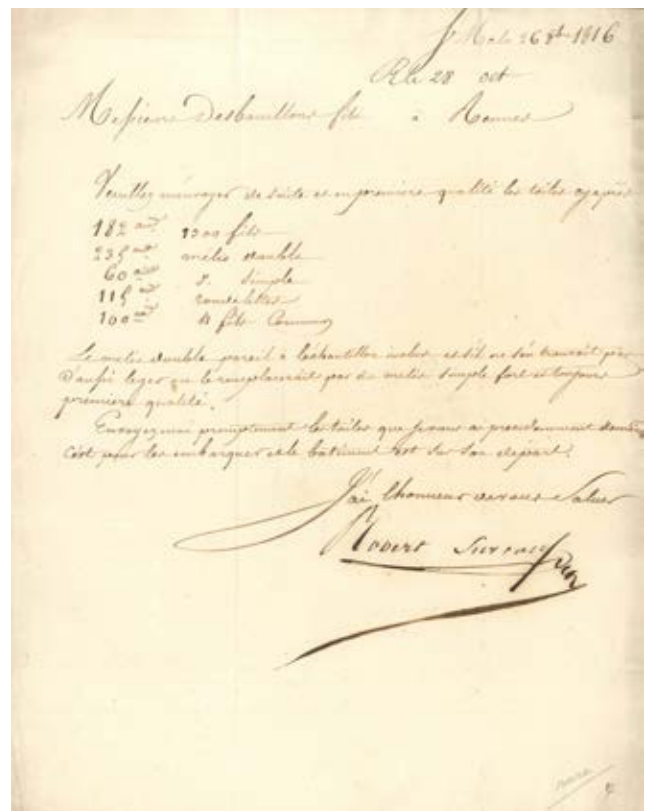 St Malo 26 8bre 1816
R le 28 oct
Messieurs Desbouillons fils à Rennes
Veuillez m'envoyer de suite et en premiere qualité les toiles cy apres
182 aunes fils
235 aunes melis double
60 aunes d. simple
115 aunes rondelettes
100 aunes 4 fils Commun
Le melis double pareil a l'echantillon inclus et s'il ne s'en trouvait pas
d'aussi leger on le remplacerait par du melis simple fort et toujours
premiere qualité.
Envoyez moi promptement les toiles que je vous ai precedemment
c'est pour les embarquer et le batiment est sur son depart.
J'ai l'honneur de vous Saluer
Robert Surcouf